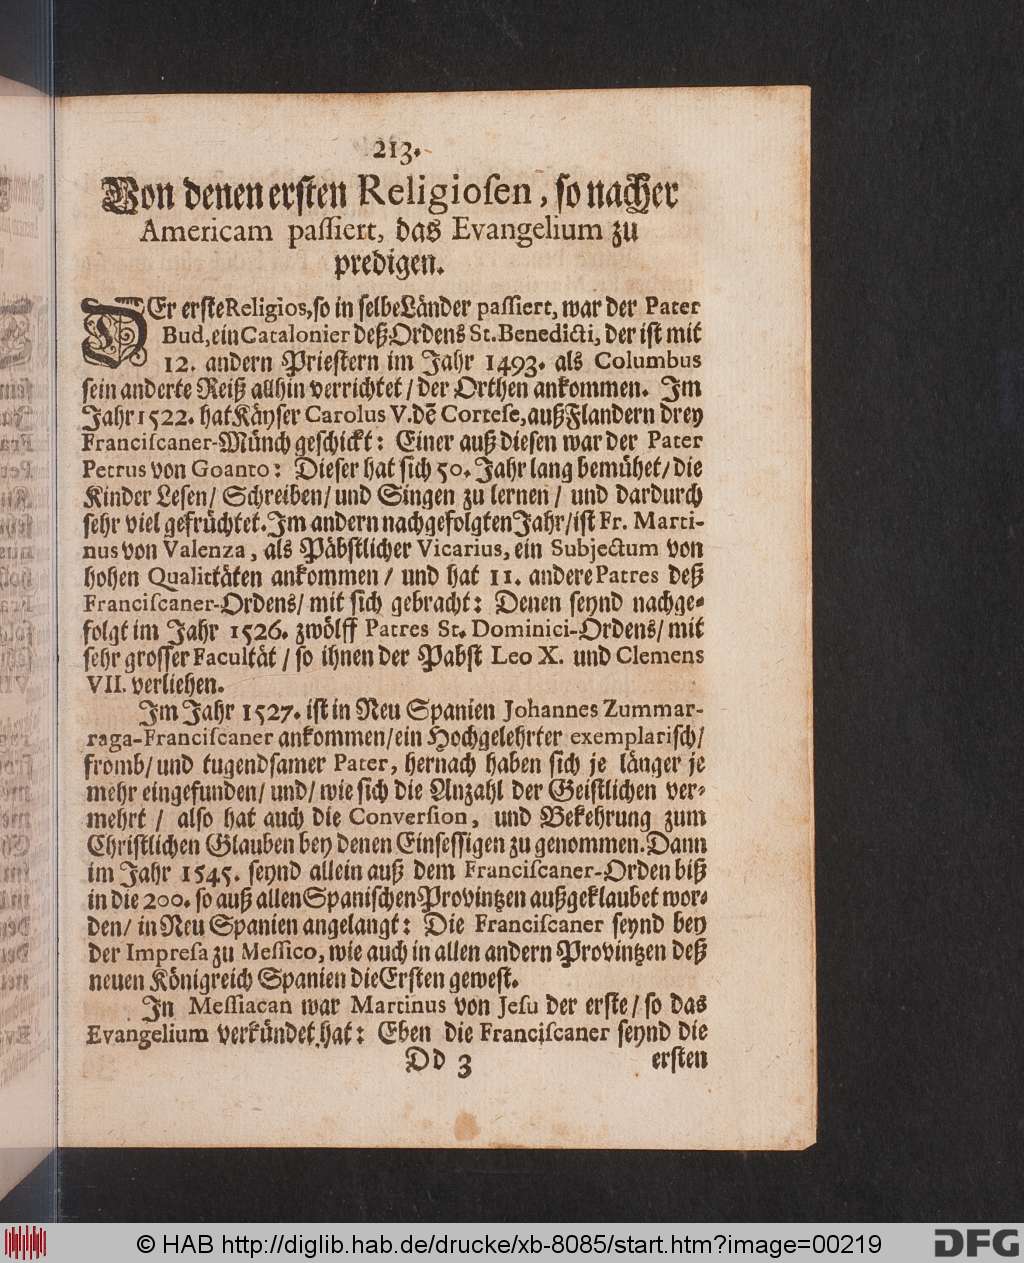 213.
Von denen ersten Religiosen, so nacher
Americam passiert, das Evangelium zu
predigen.
DEr erste Religios, so in selbe Länder passiert, war der Pater
Bud, ein Catalonier deß Ordens St. Benedicti, der ist mit
12. andern Priestern im Jahr 1493. als Columbus
sein anderte Reiß allhin verrichtet / der Orthen ankommen. Im
Jahr 1522. hat Käyser Carolus V. dē Cortese, auß Flandern drey
Franciscaner-Münch geschickt: Einer auß diesen war der Pater
Petrus von Goanto: Dieser hat sich 50. Jahr lang bemühet / die
Kinder Lesen / Schreiben / und Singen zu lernen / und dardurch
sehr viel gefrüchtet. Im andern nachgefolgten Jahr / ist Fr. Marti-
nus von Valenza, als Päbstlicher Vicarius, ein Subjectum von
hohen Qualittäten ankommen / und hat 11. andere Patres deß
Franciscaner-Ordens / mit sich gebracht: Denen seynd nachge-
folgt im Jahr 1526. zwölff Patres St. Dominici-Ordens / mit
sehr grosser Facultät / so ihnen der Pabst Leo X. und Clemens
VII. verliehen.
Im Jahr 1527. ist in Neu Spanien Johannes Zummar-
raga-Franciscaner ankommen / ein Hochgelehrter exemplarisch /
fromb / und tugendsamer Pater, hernach haben sich je länger je
mehr eingefunden / und / wie sich die Anzahl der Geistlichen ver-
mehrt / also hat auch die Conversion, und Bekehrung zum
Christlichen Glauben bey denen Einsessigen zu genommen. Dann
im Jahr 1545. seynd allein auß dem Franciscaner-Orden biß
in die 200. so auß allen Spanischen Provintzen außgeklaubet wor-
den / in Neu Spanien angelangt: Die Franciscaner seynd bey
der Impresa zu Messico, wie auch in allen andern Provintzen deß
neuen Königreich Spanien die Ersten gewest.
In Messiacan war Martinus von Jesu der erste / so das
Evangelium verkündet hat: Eben die Franciscaner seynd die
Dd 3 ersten
© HAB http://diglib.hab.de/drucke/xb-8085/start.htm?image=00219
DFG